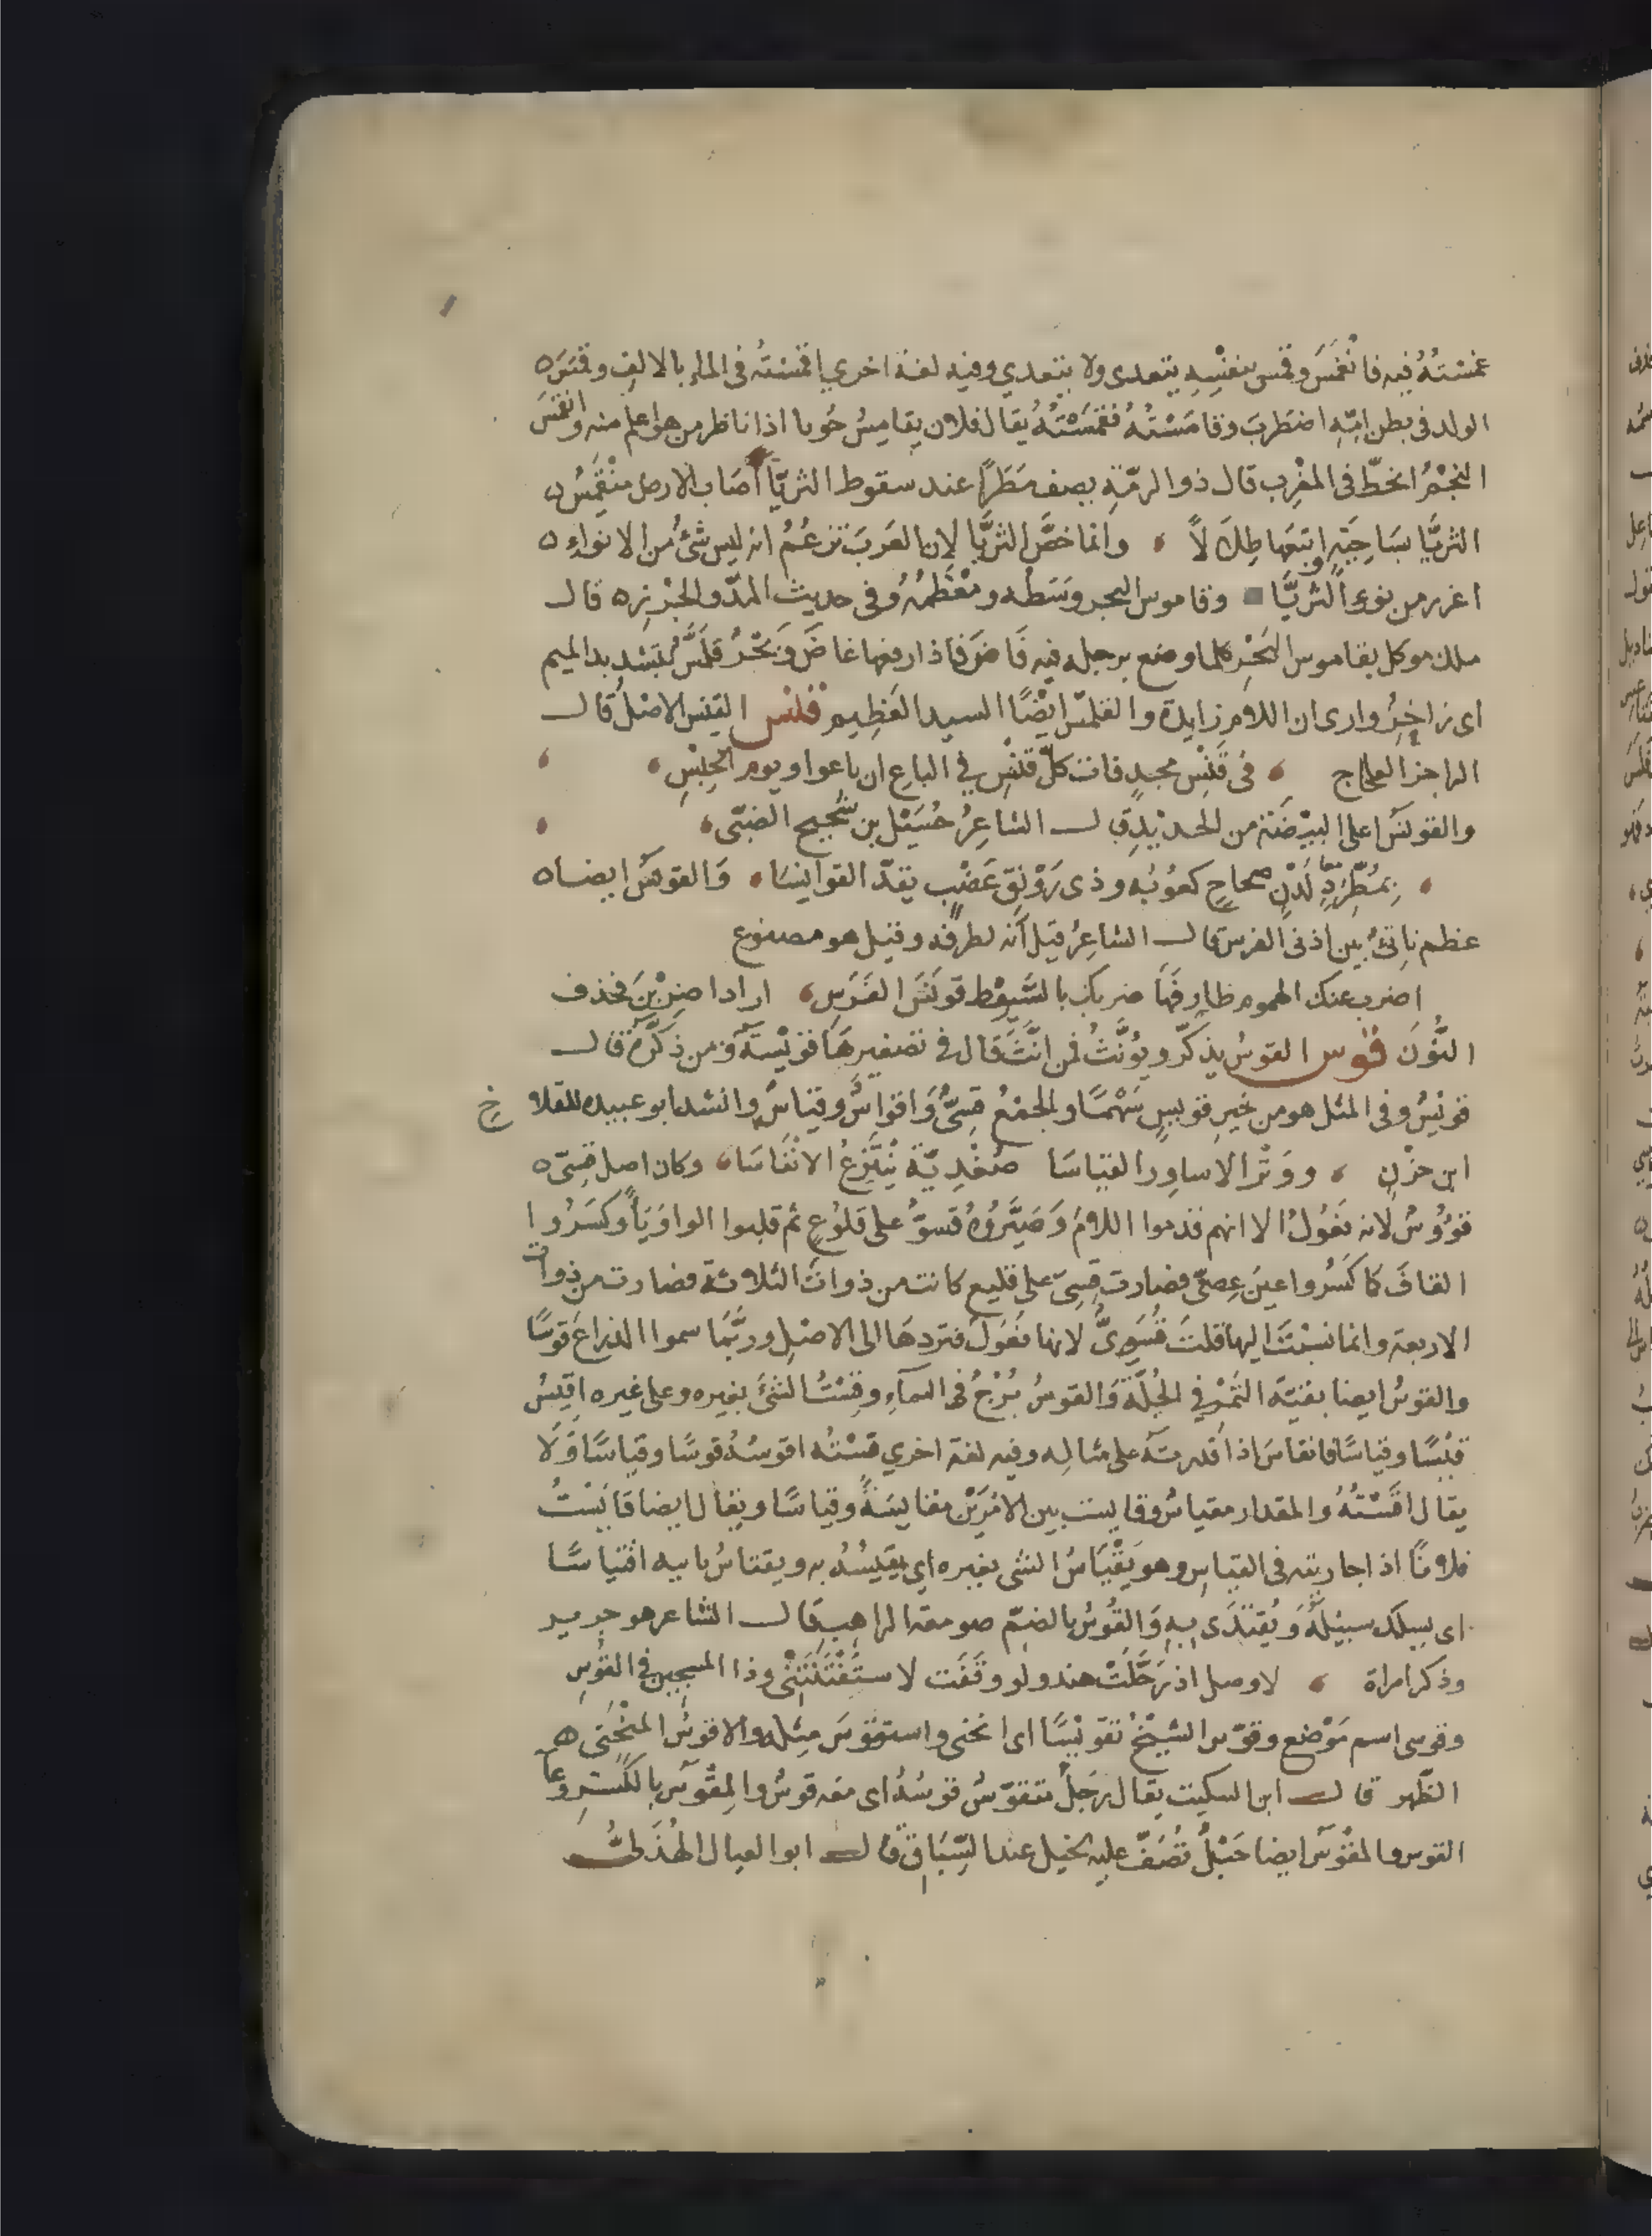 غمستُهُ فيه فانْغمَسَ وقمس بنفْسِهِ يتعدى ولا يتعدي وفيه لغة اخري اقمسْتُه في الماء بالالفِ وقمَسَ ه
الولد في بطن امِّهِ اضطرَبَ وقامَسْتُهُ فقمَسْتُهُ يقال فلان يقامِسُ حُوتا اذا ناظر من هو اعلم منه وانقمَسَ
النجْمُ انحطّ في المغْرِب قال ذو الرمّة يصف مَطَرًا عند سقوط الثريّا اصَاب الارض منْقَمَسُ
الثريَّا بسَاحِيَةٍ واتبعَهَا طِلَالاً ، وانما خصَّ الثريَّا لان العَرَبَ تزعُمُ انه ليس شئٌ من الانواءِ ه
اغزر من نوءِ الثريَّا وقاموس البحر وَسَطُه ومُعْظَمُهُ وفي حديث المدّ والجزْرِ ه قال
ملك موكل بقاموس البَحْرِ كلما وضع رجله فيه فَاضَ فاذا رفعها غاضَ وَبَحْرٌ قلمَّسٌ بتشديد الميم
اى زاخِرٌ وارى ان اللام زايدة والقلمّس ايضًا السيد العَظِيم قنس القِنس الاصْل قال
الراجز العجاج ، في قَنْسِ مجدٍ فات كلّ قنْسِ في الباع ان باعوا ويوم الحِبْسِ ،
والقونَس اعلى البيْضَة من الحديد قال الشاعِرُ حُسَيْل بن سُحَيح الضبّى ،
، بمُطَّرِدٍ لَدْنٍ صحاحٍ كعُوبُه وذى رَوْنقٍ عَضْبٍ يقدّ القوانِسَا ، وَالقونَسُ ايضا ه
عظم ناتئٌ بين اذنى الفرس قال الشاعِرُ قيل انه لطرفه وقيل هو مصنوع
اضرب عنك الهموم طارِقَهَا ضربك بالسَّوْطِ قونَسَ الفَرَسِ ، اراد اضرِبَنْ فحذف
النُّونَ قوس القوسُ يذكّر ويُؤنَّثُ فمن انَّثَ قال في تصغيرهَا قوَيْسَة ومن ذكَّرَ قال
قوَيْسٌ وفي المثل هو من خَيرِ قويسٍ سَهْمًا والجمْعُ قِسِىٌّ وَاقواسٌ وقِيَاسٌ وانشد ابو عبيده للقلاخ
ابن حَزْنٍ ، ووَتّر الاساوِر القياسَا صُغْدِيّة تَنْتَزِعُ الانْفَاسَا ، وكان اصل قِسِىّ ه
قوُؤسٌ لانه فَعُولٌ الا انهم قدموا اللامَ وَصَيَّرُوهُ قسوٌّ على فلوْعٍ ثم قلبوا الواوَ يَاً وكسَرُوا
القافَ كما كسَرُوا عينَ عِصِىّ فصارت قِسِىّ على فليعٍ كانت من ذوات الثلاثة فصارت من ذوات
الاربعة وانما نسَبْتَ اليها قلتَ قُسَوِىٌّ لانها فَعُولٌ فتردهَا الى الاصْلِ وربَّمَا سموا الذراعَ قوسًا
والقوسُ ايضا بقيّة التَّمْرِ في الجُلّةِ وَالقوسُ بُرْجٌ في السمآءِ وقِسْتُ الشئَ بغيره وعلى غيره اقيسُ
قيْسًا وقياسًا فانقاسَ اذا قدرتَهُ على مثالِه وفيه لغة اخري قسْتُه اقوسُهُ قوسًا وقياسًا وَلا
يقال اقسْتُهُ والمقدار مقياسٌ وقايست بين الامْرَيْن مقايسَةً وقياسًا ويقال ايضا قايَسْتُ
فلانًا اذا جاريته في القياسِ وهو يَقْتَاسُ الشى بغيره اي يقيسُهُ به ويقتاسُ بابيه اقتياسًا
اى يسلك سبيْلَهُ وَيُقتَدَى بهِ وَالقُوسُ بالضمّ صومعة الراهِب قال الشاعر هو جرير
وذكر امراة ، لا وصل اذ رَحَّلَتْ هند ولو وقفَت لاستفْتَنَتْنى وذا المسحين في القُوسِ
وقوسى اسم مَوْضع وقوّس الشيخْ تقويْسًا اى انحنى واستقوَسَ مثله والاقوسُ المنْحَنِى ه
الظّهر قال ابن السكيت يقال رَجلٌ متقوّسٌ قوسُهُ اى معه قوسٌ والمِقْوَس بالكسْرِ وِعاً
القوس والمقْوَس ايضا حَبْلٌ تُصَفّ عليه الخيل عند السّبَاقِ قال ابو العيال الهُذَلىُّ